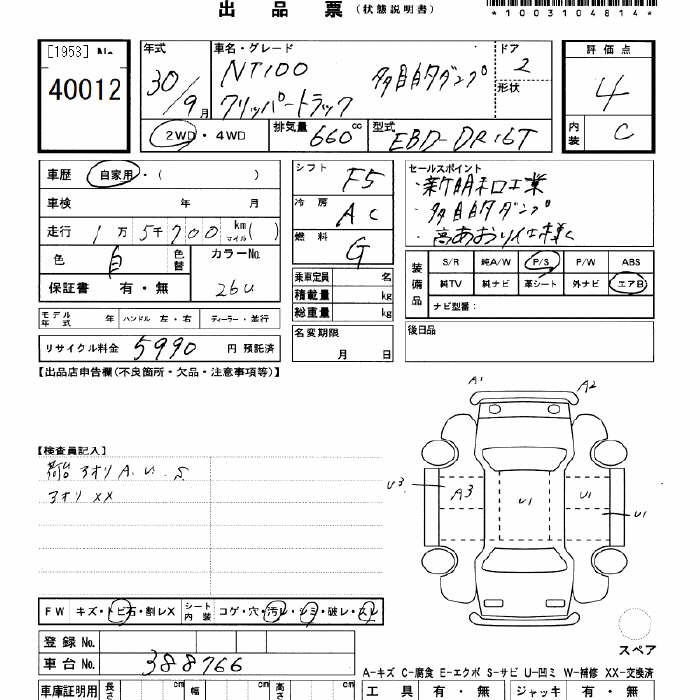 出品票(状態説明書)
*1003104814*
[1953] No.
40012
年式
30/9月
車名・グレード
NT100 多目的ダンプ
クリッパートラック
ドア
2
形状
評価点
4
内装
C
2WD・4WD
排気量
660cc
型式
EBD-DR16T
車歴 自家用・( )
車検 年 月
走行 1万5千700 km マイル( )
色 白 色替
カラーNo.
26U
保証書 有・無
モデル年式 年 ハンドル 左・右 ディーラー・並行
リサイクル料金 5990 円 預託済
シフト F5
冷房 AC
燃料 G
乗車定員 名
積載量 kg
総重量 kg
名変期限
月 日
セールスポイント
・新明和工業
・多目的ダンプ
・高あおり仕様
装備品
S/R 純A/W P/S P/W ABS
純TV 純ナビ 革シート 外ナビ エアB
ナビ型番:
後日品
【出品店申告欄(不良箇所・欠品・注意事項等)】
【検査員記入】
荷台 アオリ A. U. S
アオリ XX
A1
A2
U3
A3
U1
U1
U1
スペア
FW キズ・トビ石・割レX シート内装 コゲ・穴・汚レ・シミ・破レ・スレ
登録 No.
車台 No. 388766
A-キズ C-腐食 E-エクボ S-サビ U-凹ミ W-補修 XX-交換済
車庫証明用 長さ cm 幅 cm 高さ cm
工具 有・無 ジャッキ 有・無